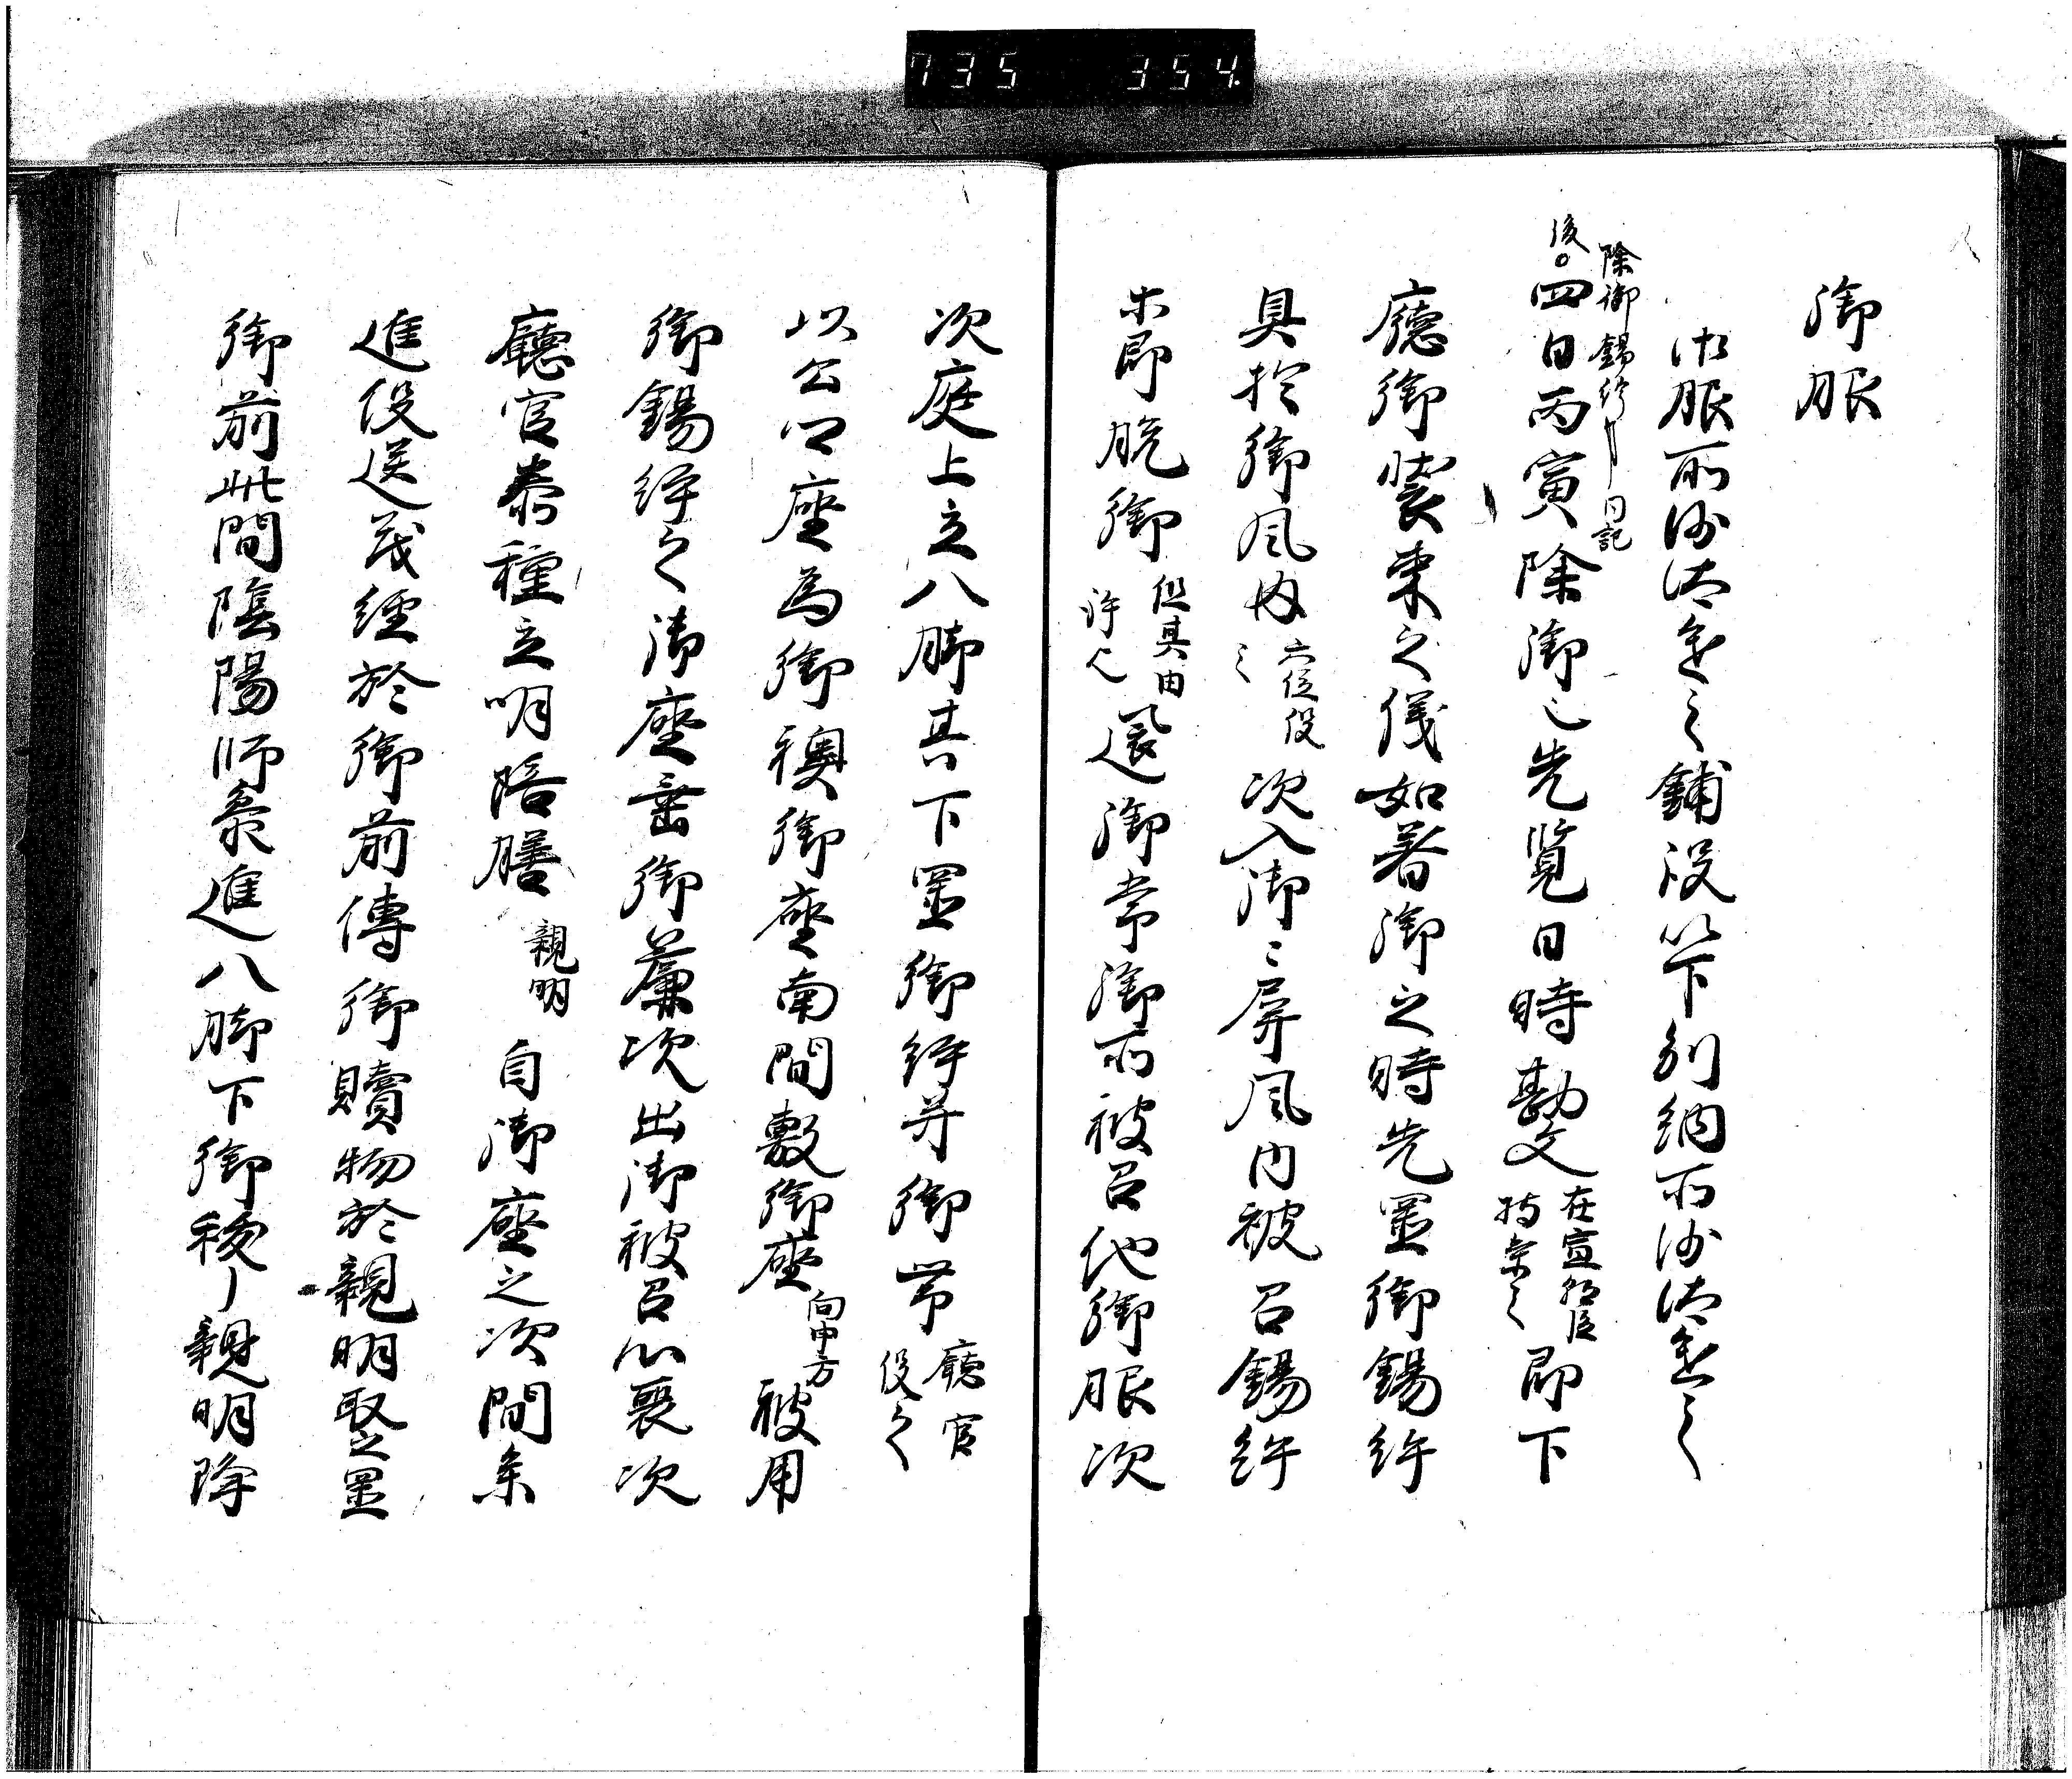 735 354
御服
御服所沙汰進之鋪設以下別納所沙汰進之
除御錫紵 日記
後四日丙寅除御也先覧日時勘文在宣朝臣持参之即下
廳御装束之儀如着御之時先置御錫紵
具於御屏風内六位役之次入御々屏風内被召錫紵
未即脱御但其由許也還御常御所被召他御服次
次庭上立八脚其下置御紵并御帯廳官役之
以公卿座為御禊御座南間敷御座向申方被用
御錫紵之御座垂御簾次出御被召心喪次
廳官泰種立明陪膳親明自御座之次間参
進役送茂経於御前傳御贖物於親明取之置
御前此間陰陽師参進八脚下御祓了親明降